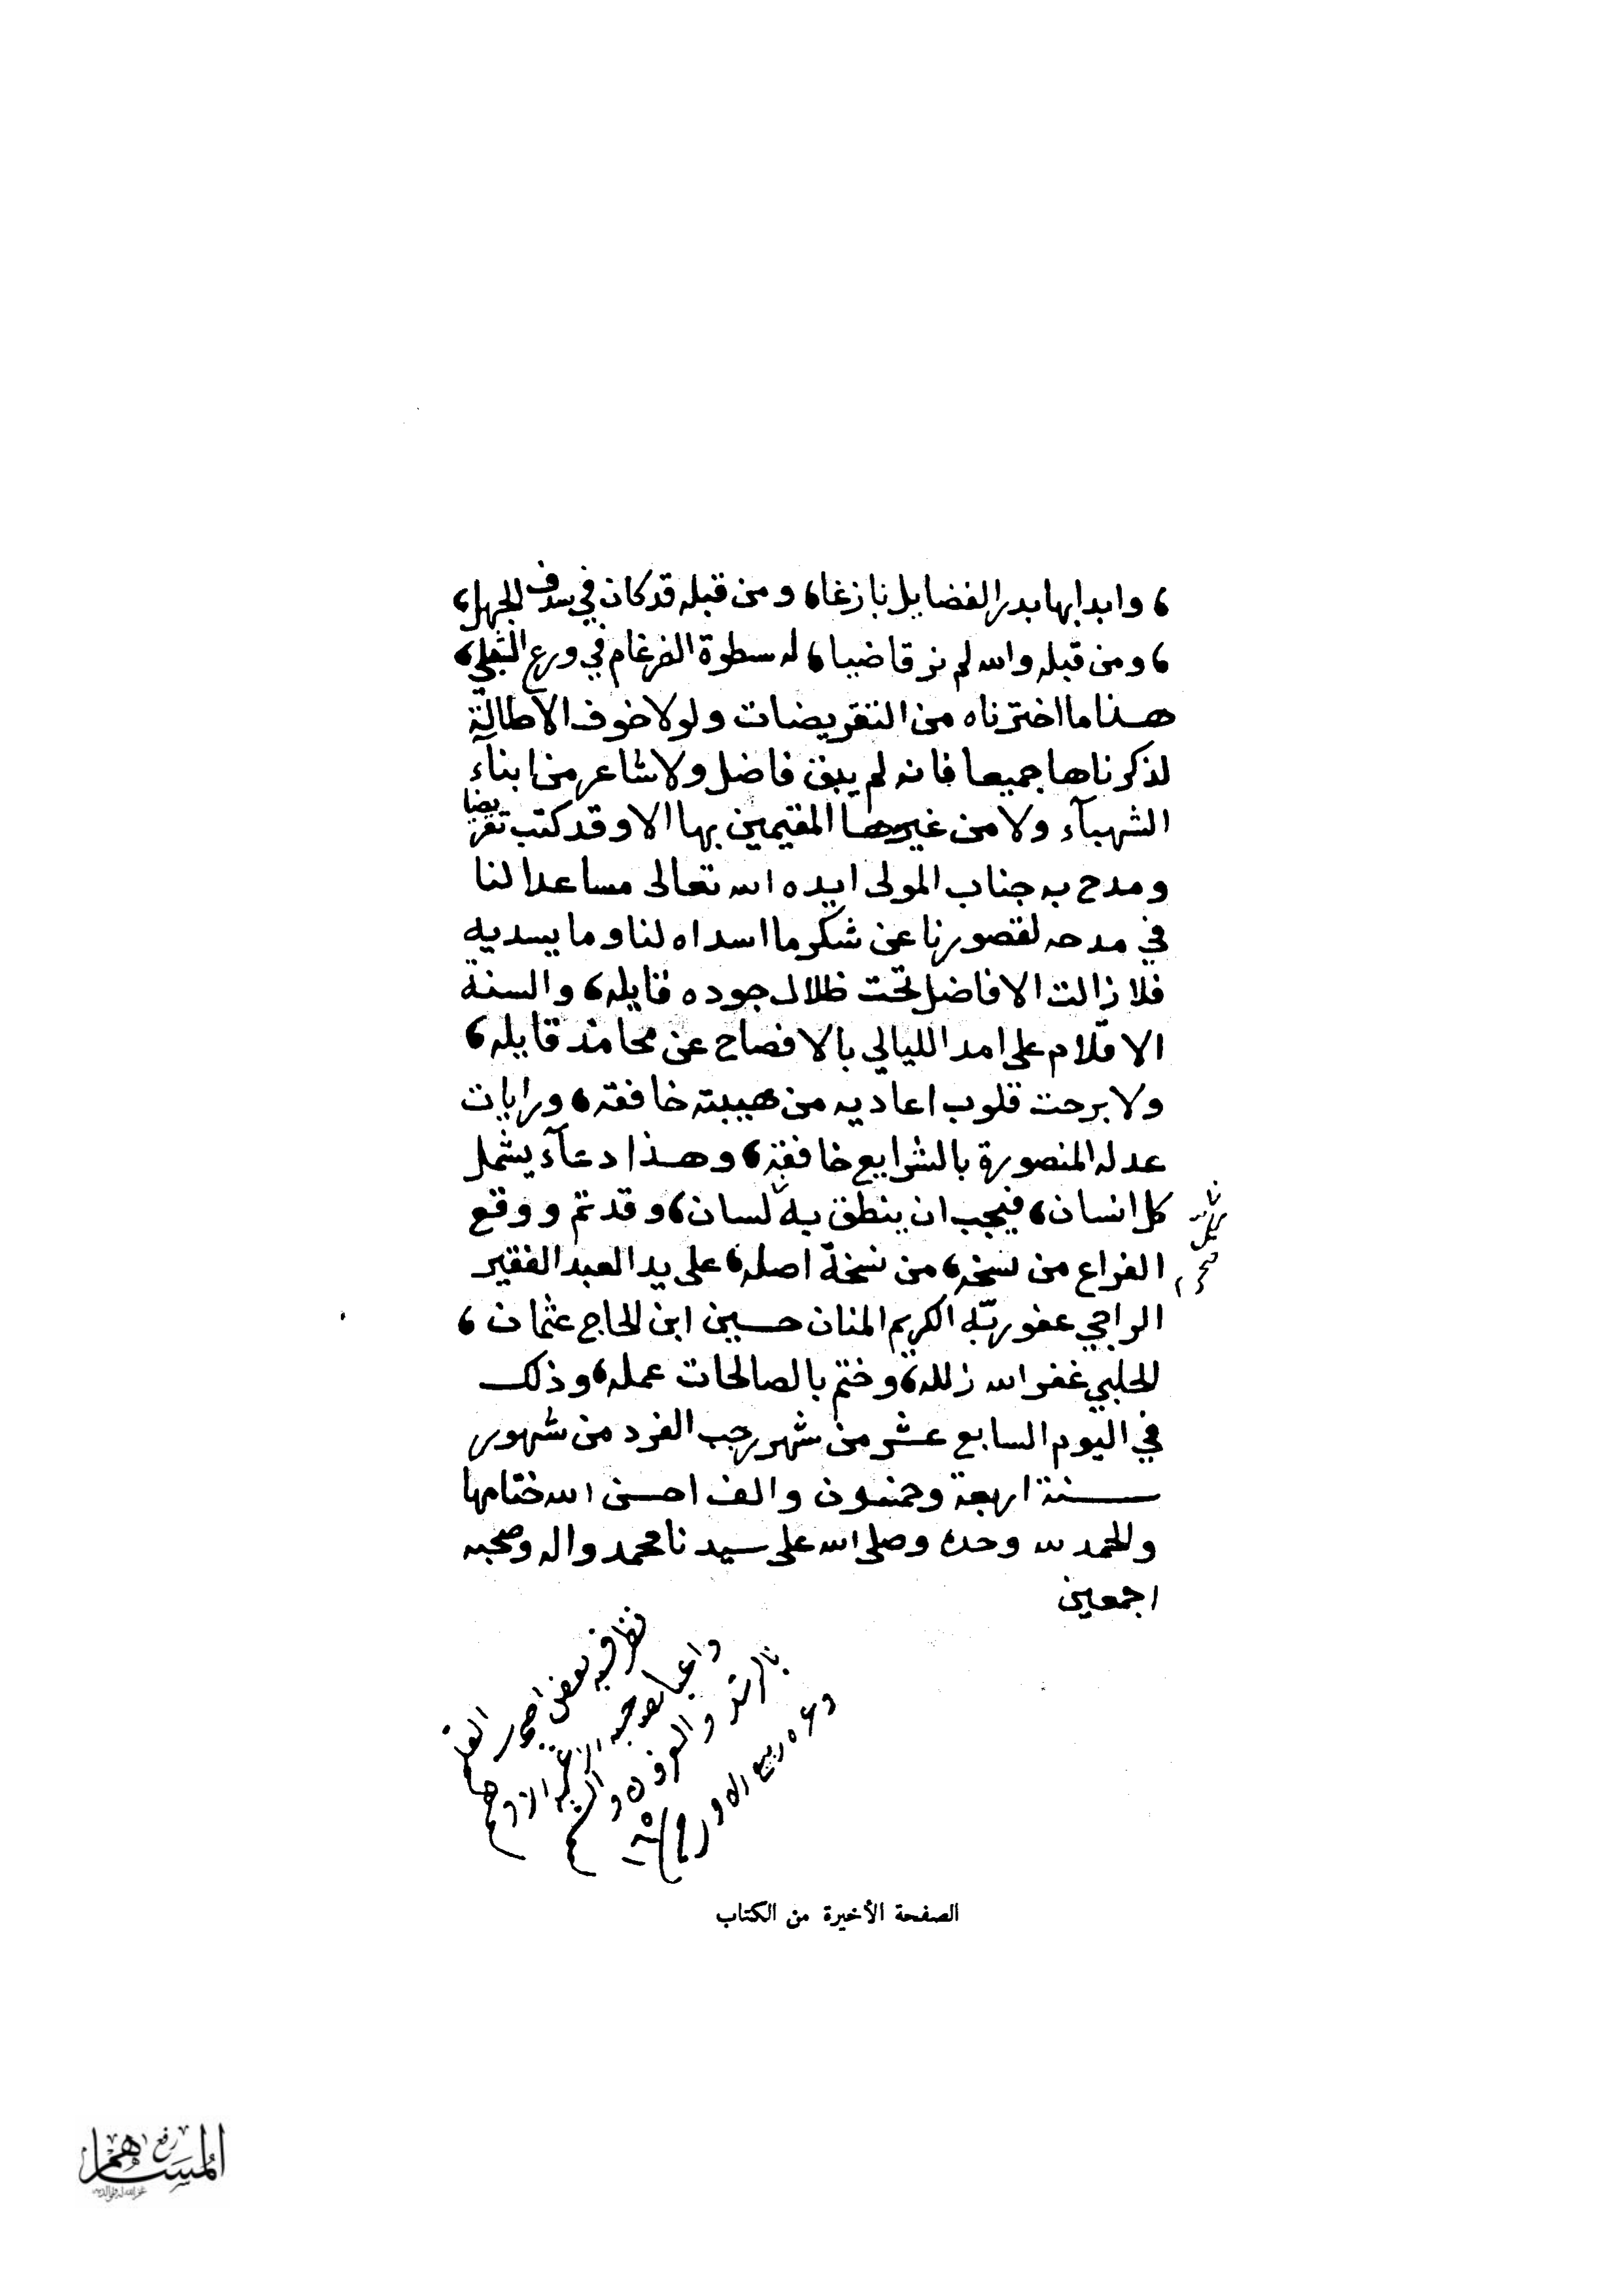 ، وابدا بها بدر الفضايل بازغا، ومن قبله قد كان في سدف الجهل،
، ومن قبله والله لم نر قاضيا، له سطوة الضرغام في ورع الشبلي،
هذا ما اخترناه من التقريضات ولولا خوف الاطالة
لذكرناها جميعا فانه لم يبق فاضل ولا شاعر من ابنآء
الشهبآء ولا من غيرها المقيمين بها الا وقد كتب تقريضا
ومدح به جناب المولى ايده الله تعالى مساعدا لنا
في مدحه لقصورنا عن شكر ما اسداه لنا وما يسديه
فلا زالت الافاضل تحت ظلال جوده قايله، والسنة
الاقلام على امد الليالي بالافصاح عن محامده قايله،
ولا برحت قلوب اعاديه من هيبته خافقه، ورايات
عدله المنصورة بالشرايع خافقة، وهذا دعآء يشمل
كل انسان، فيجب ان ينطق به لسان، وقد تم ووقع
الفراغ من نسخه، من نسخة اصله، على يد العبد الفقير
الراجي عفو ربه الكريم المنان حسين ابن الحاج عثمان،
الحلبي غفر الله زلله، وختم بالصالحات عمله، وذلك
في اليوم السابع عشر من شهر رجب الفرد من شهور
سنة اربعة وخمسون والف احسن الله ختامها
والحمد لله وحده وصلى الله على سيدنا محمد واله وصحبه
اجمعين
نظر فيه
الصفحة الأخيرة من الكتاب
المساهم
رفع
غفر الله له ولوالديه